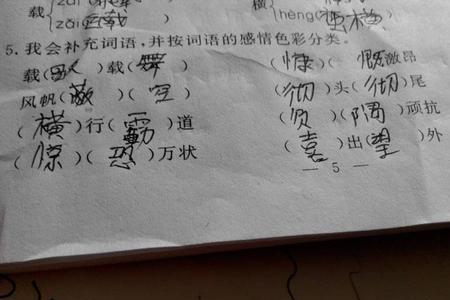 载 横 hèng(蛮横)
5.我会补充词语,并按词语的感情色彩分类。
载(歌)载(舞) (慷 慨激昂
风帆(蔽)(空) (彻)头(彻)尾
(横)行(霸)道 (负)(隅)顽抗
(惊)(恐)万状 (喜)出(望)外
— 5 —